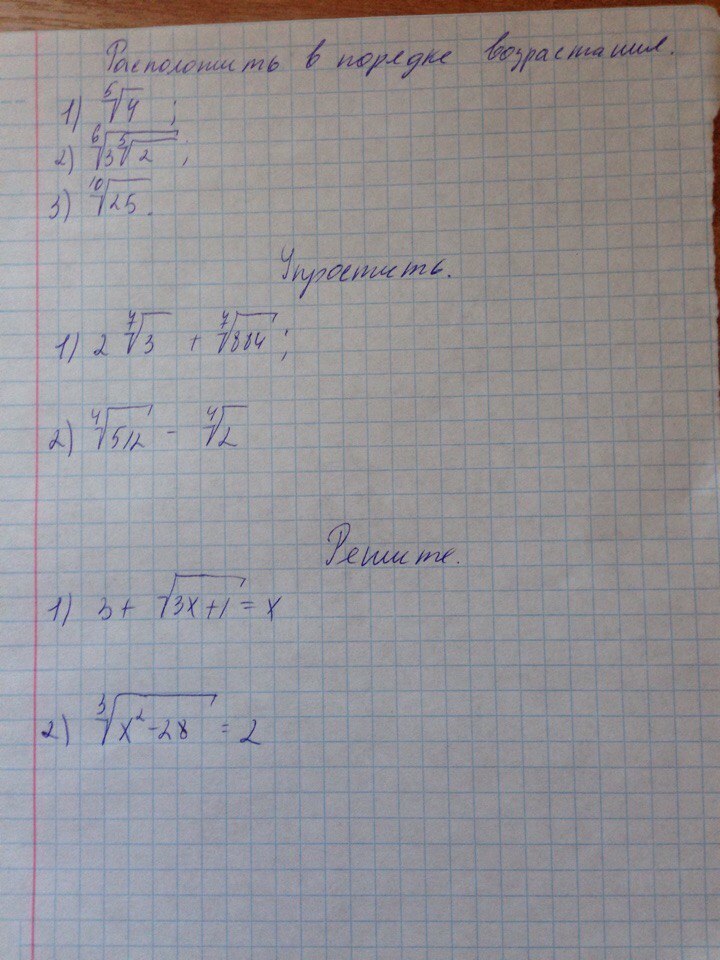 Расположить в порядке возрастания.
1) ⁵√4 ;
2) ⁶√(3 ⁵√2) ;
3) ¹⁰√25.
Упростить.
1) 2 ⁷√3 + ⁷√884 ;
2) ⁴√512 - ⁴√2
Решите.
1) 3 + √(3x+1) = x
2) ³√(x²-28) = 2